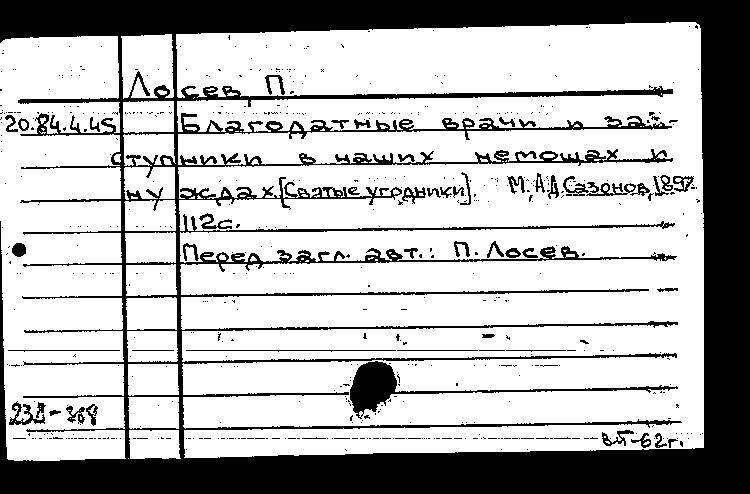 Лосев, П.
20.84.4.45 Благодатные врачи и за-
ступники в наших немощах и
нуждах [Святые угодники]. М., А.Д. Сазонов, 1897
112с.
Перед загл. авт.: П. Лосев.